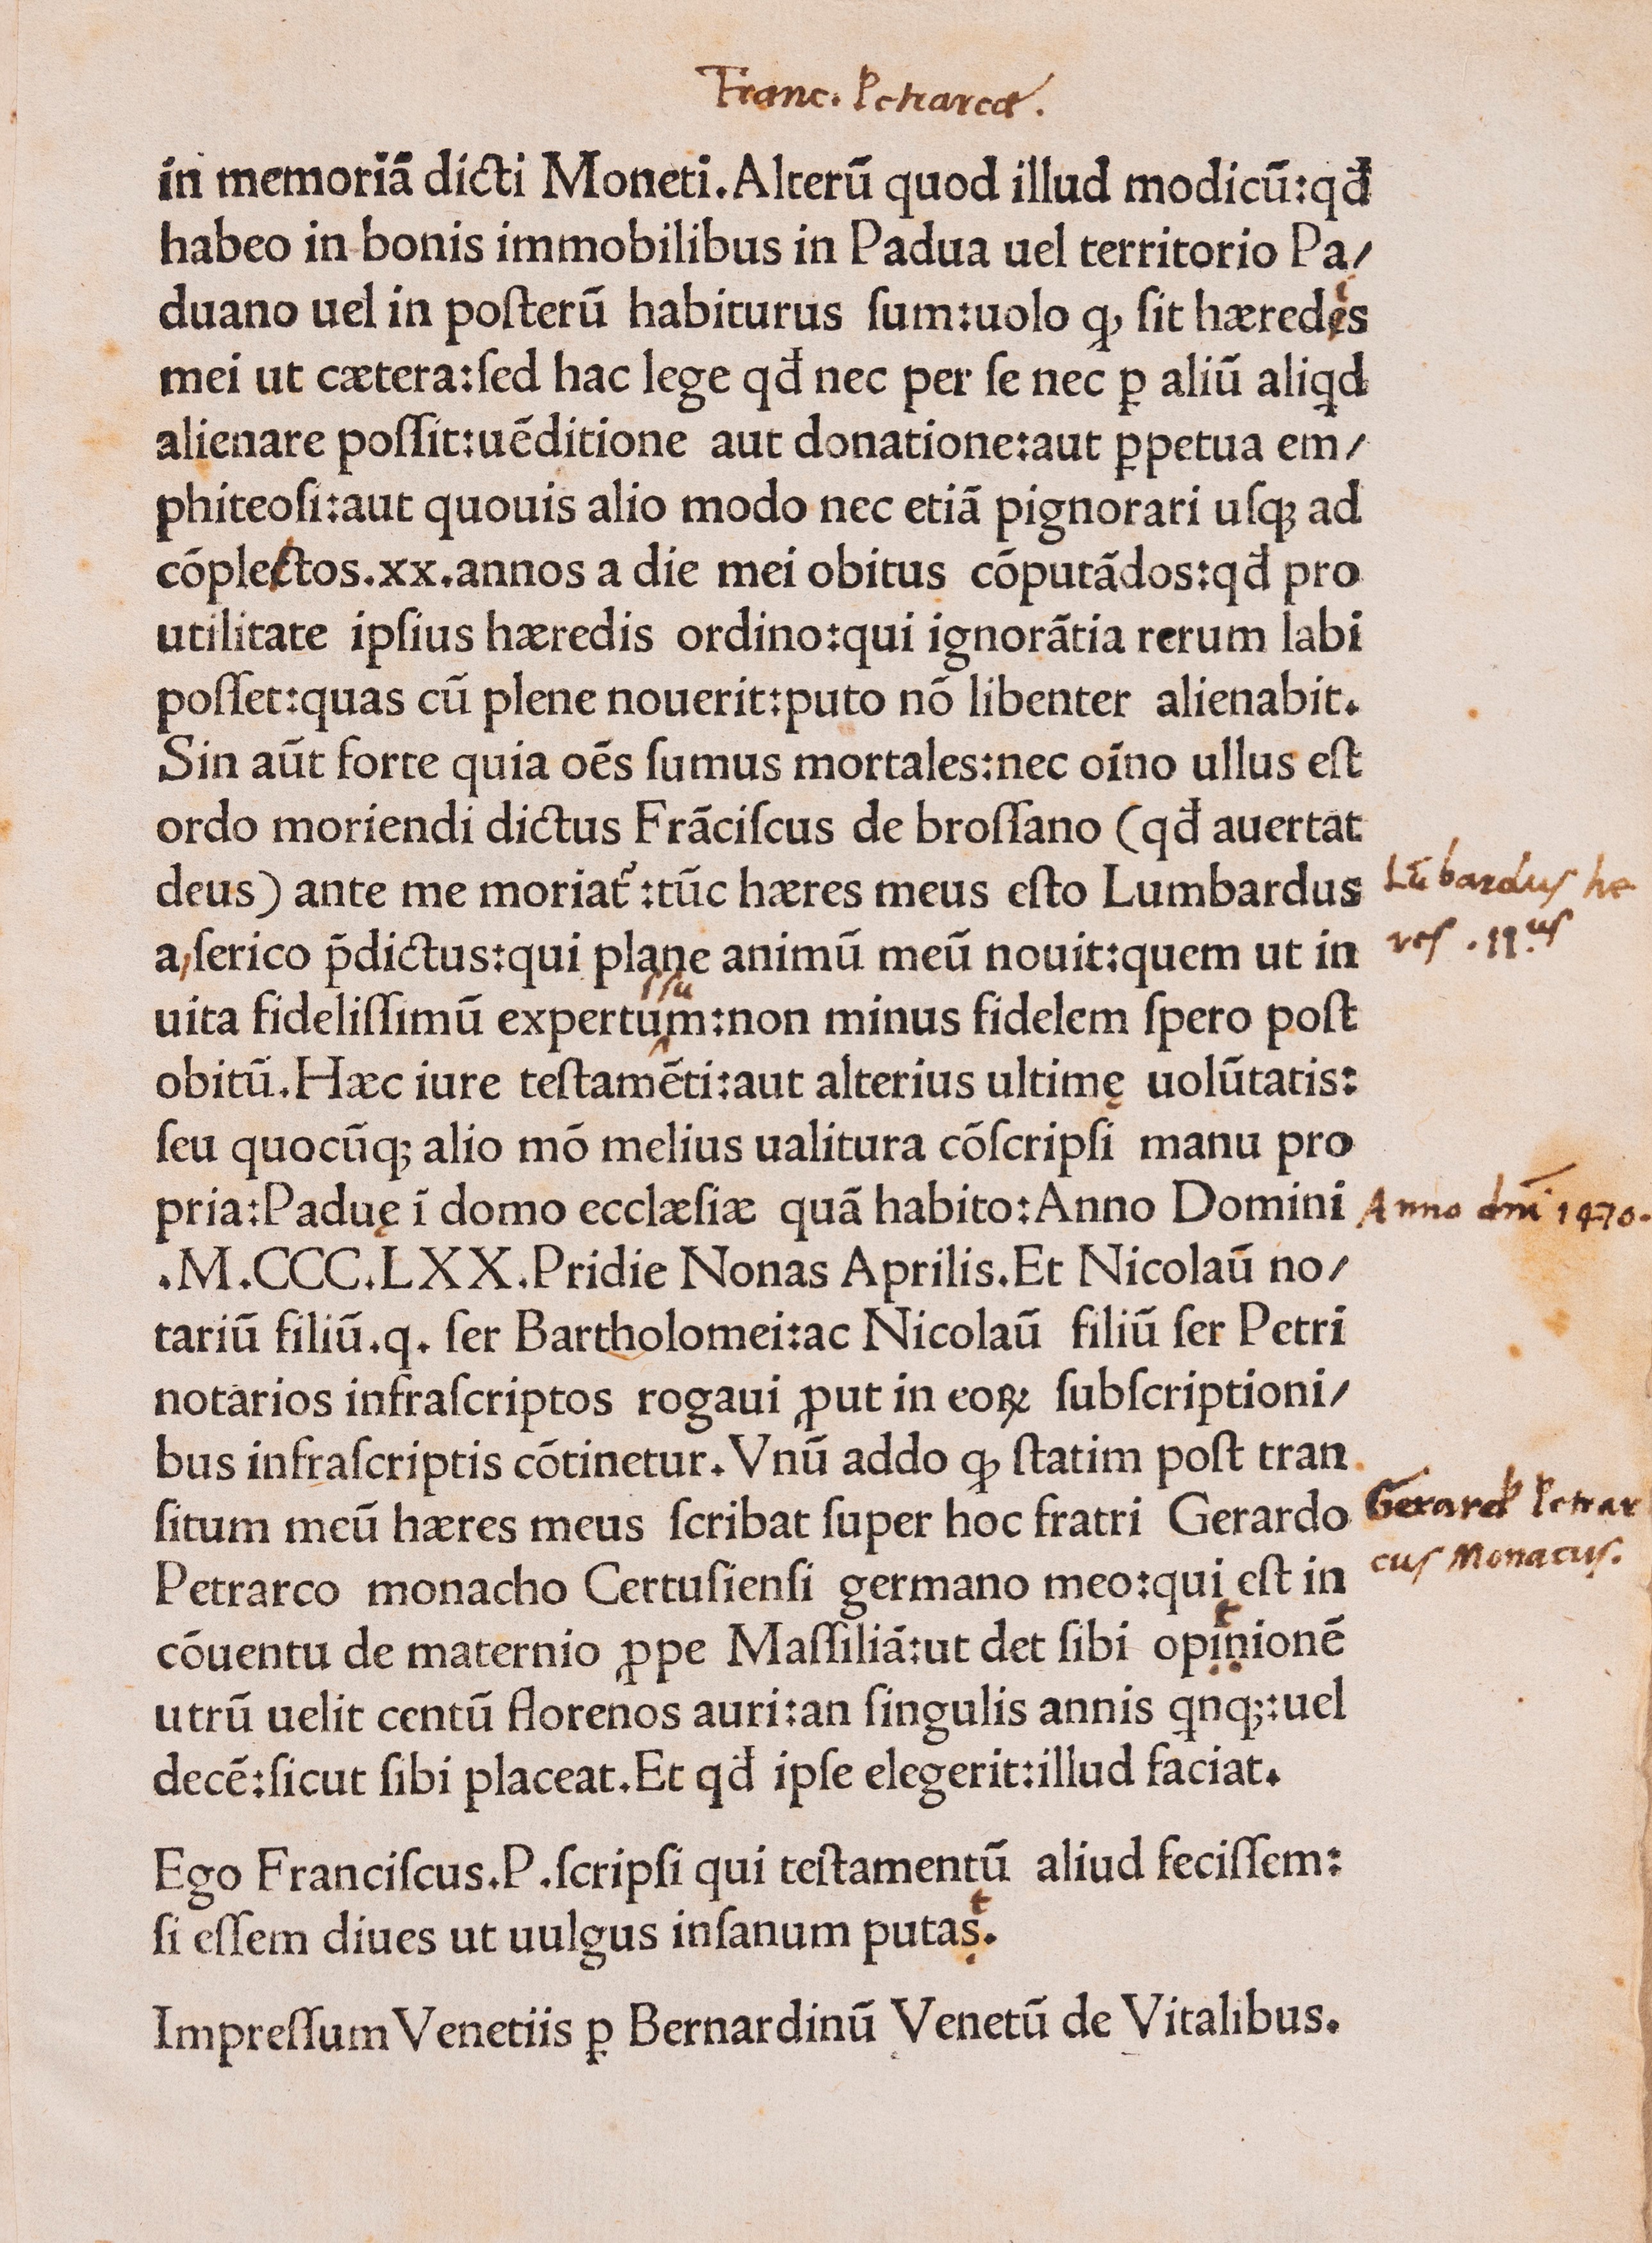 Franc. Petrarcæ.
in memoriā dicti Moneti.Alterū quod illud modicū:qđ
habeo in bonis immobilibus in Padua uel territorio Pa/
duano uel in poſterū habiturus ſum:uolo ꝙ ſit hæredes
i
mei ut cætera:ſed hac lege qđ nec per ſe nec ꝑ aliū aliqd
alienare poſſit:uēditione aut donatione:aut ꝑpetua em/
phiteoſi:aut quouis alio modo nec etiā pignorari uſqꝫ ad
cōplectos.xx.annos a die mei obitus cōputādos:qđ pro
utilitate ipſius hæredis ordino:qui ignorātia rerum labi
poſſet:quas cū plene nouerit:puto nō libenter alienabit.
Sin aūt forte quia oēs ſumus mortales:nec oīno ullus eſt
ordo moriendi dictus Frāciſcus de broſſano (qđ auertat
deus) ante me moriat᷑:tūc hæres meus eſto Lumbardus
Lūbardus he
a,ſerico p̄dictus:qui plane animū meū nouit:quem ut in
res .IIus
ſſu
uita fideliſſimū expertum:non minus fidelem ſpero poſt
obitū.Hæc iure teſtamēti:aut alterius ultimę uolūtatis:
ſeu quocūqꝫ alio mō melius ualitura cōſcripſi manu pro
pria:Paduę ī domo ecclæſiæ quā habito:Anno Domini
Anno dn̄i 1470.
.M.CCC.LXX.Pridie Nonas Aprilis.Et Nicolaū no/
tariū filiū.q. ſer Bartholomei:ac Nicolaū filiū ſer Petri
notarios infraſcriptos rogaui ꝓut in eoꝝ ſubſcriptioni/
bus infraſcriptis cōtinetur.Vnū addo ꝙ ſtatim poſt tran
ſitum meū hæres meus ſcribat ſuper hoc fratri Gerardo
Gerardꝰ Petrar
Petrarco monacho Certuſienſi germano meo:qui eſt in
cus Monacus.
t
cōuentu de maternio ꝓpe Maſſiliā:ut det ſibi opinionē
utrū uelit centū florenos auri:an ſingulis annis qnqꝫ:uel
decē:ſicut ſibi placeat.Et qđ ipſe elegerit:illud faciat.
Ego Franciſcus.P.ſcripſi qui teſtamentū aliud feciſſem:
t
ſi eſſem diues ut uulgus inſanum putas.
Impreſſum Venetiis ꝑ Bernardinū Venetū de Vitalibus.